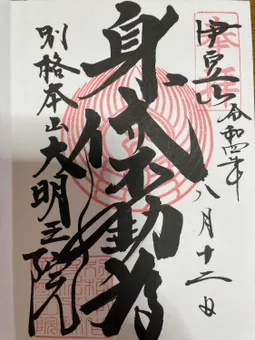 奉拝
伊豆山
令和四年
八月十二日
身代不動尊
別格本山大明王院